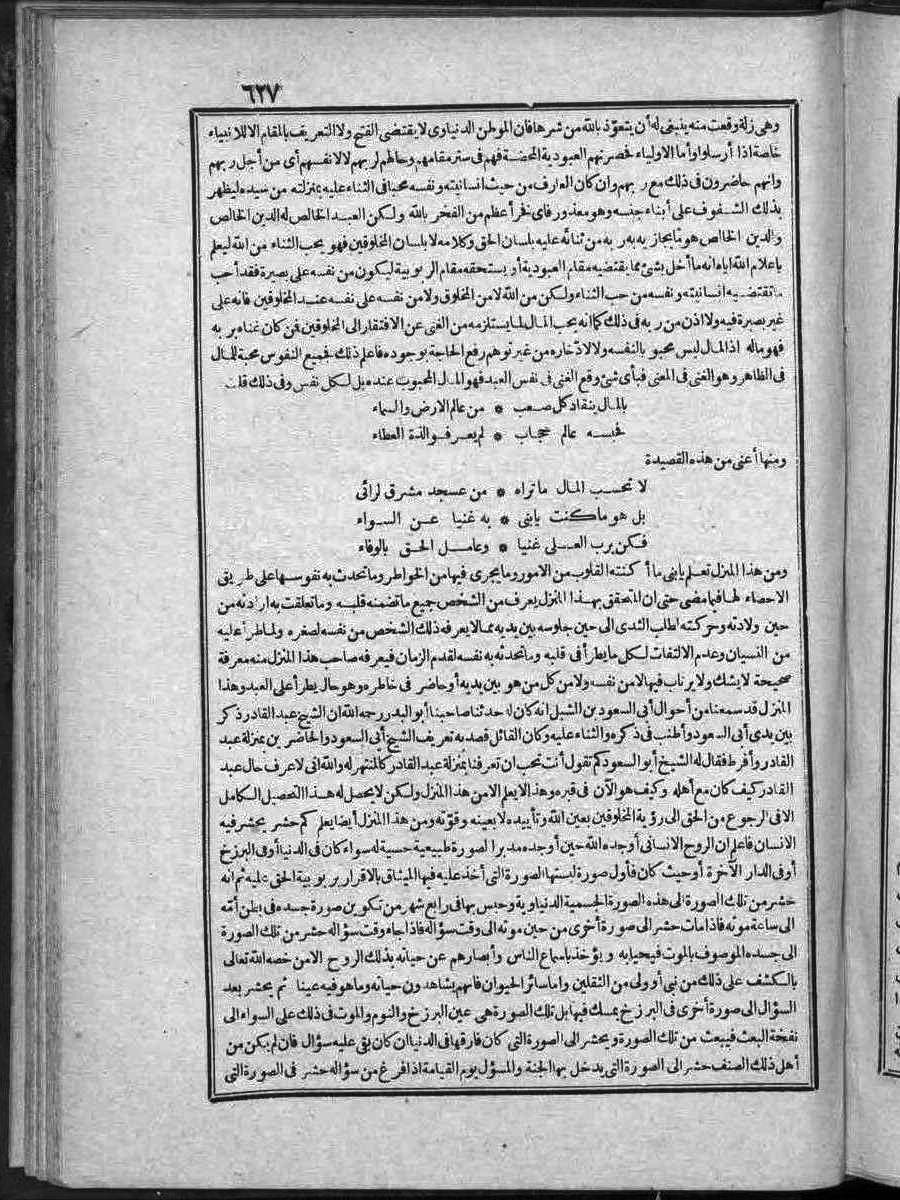 ٦٢٧
وهى زلة وقعت منه ينبغى له أن يتعوّذ بالله من شرها فان الموطن الدنياوى لا يقتضى الفتح ولا التعريف بالمقام الا للانبياء
خاصة اذا أرسلوا وأما الاولياء فحضرتهم العبودية المحضة فهم فى ستر مقامهم وحالهم لربهم لا لانفسهم أى من أجل ربهم
وانهم حاضرون فى ذلك مع ربهم وان كان العارف من حيث انسانيته ونفسه محبا فى الثناء عليه بمنزلته من سيده ليظهر
بذلك الشفوف على أبناء جنسه وهو معذور فاى فخر أعظم من الفخر بالله ولكن العبد الخالص له الدين الخالص
والدين الخالص هو ما يجازيه به ربه من ثنائه عليه بلسان الحق وكلامه لا بلسان المخلوقين فهو يحب الثناء من الله ليعلم
باعلام الله اياه انه ما أخل بشئ مما يقتضيه مقام العبودية أو يستحقه مقام الربوبية ليكون من نفسه على بصيرة فقد أحب
ما تقتضيه انسانيته ونفسه من حب الثناء ولكن من الله لا من المخلوق ولا من نفسه على نفسه عند المخلوقين فانه على
غير بصيرة فيه ولا اذن من ربه فى ذلك كما انه يحب المال لما يستلزمه من الغنى عن الافتقار الى المخلوقين فن كان غناه بربه
فهو ماله اذ المال ليس محبو بالنفسه ولا لادّخاره من غير توهم رفع الحاجة بوجوده فاعلم ذلك فجميع النفوس محبة للمال
فى الظاهر وهو الغنى فى المعنى فبأى شئ وقع الغنى فى نفس العبد فهو المال المحبوب عنده بل لكل نفس وفى ذلك قلت
بالمال ينقاد كل صعب * من عالم الارض والسماء
فحبسه عالم حجاب * لم يعرفوا لذة العطاء
ومنها أعنى من هذه القصيدة
لا تحسب المال ما تراه * من عسجد مشرق لرائى
بل هو ما كنت يابنى * به غنيا عن السواء
فكن برب العلى غنيا * وعامل الحق بالوفاء
ومن هذا المنزل تعلم يابنى ما أكنته القلوب من الامور وما يجرى فيها من الخواطر وما تحدث به نفوسها على طريق
الاحصاء لها فيما مضى حتى ان المتحقق بهذا المنزل يعرف من الشخص جميع ما تضمنه قلبه وما تعلقت به ارادته من
حين ولادته وحركته لطلب الثدى الى حين جلوسه بين يديه مما لا يعرفه ذلك الشخص من نفسه لصغره ولما طرأ عليه
من النسيان وعدم الالتفات لكل ما يطرأ فى قلبه وما تحدثه به نفسه لقدم الزمان فيعرفه صاحب هذا المنزل منه معرفة
صحيحة لا يشك ولا يرتاب فيها لا من نفسه ولا من كل من هو بين يديه أو حاضر فى خاطره وهو حال يطرأ على العبد وهذا
المنزل قد سمعناه من أحوال أبى السعود بن الشبل انه كان له حدثنا صاحبنا أبو البدر رحمه الله ان الشيخ عبد القادر ذكر
بين يدى أبى السعود وأطنب فى ذكره والثناء عليه وكان القائل قصد به تعريف الشيخ أبى السعود والحاضرين بمنزلة عبد
القادر وأفرط فقال له الشيخ أبو السعود كم تقول أنت تحب ان تعرفنا بمنزلة عبد القادر كالمنتهر له والله انى لاعرف حال عبد
القادر كيف كان مع أهله وكيف هو الآن فى قبره وهذا لا يعلم الا من هذا المنزل ولكن لا يحصل له هذا التحصيل الكامل
الا فى الرجوع من الحق الى رؤية المخلوقين بعين الله وتأييده لا بعينه وقوّته ومن هذا المنزل أيضا يعلم كم حشر يحشر فيه
الانسان فاعلم ان الروح الانسانى أوجده الله حين أوجده مدبرا لصورة طبيعية حسية له سواء كان فى الدنيا أو فى البرزخ
أو فى الدار الآخرة أو حيث كان فأول صورة لبستها الصورة التى أخذ عليه فيها الميثاق بالاقرار بربوبية الحق عليه ثم انه
حشر من تلك الصورة الى هذه الصورة الجسمية الدنياوية وحبس بها فى رابع شهر من تكوين صورة جسده فى بطن أمّه
الى ساعة موته فاذا مات حشر الى صورة أخرى من حين موته الى وقت سؤاله فاذا جاء وقت سؤاله حشر من تلك الصورة
الى جسده الموصوف بالموت فيحيا به ويؤخذ باسماع الناس وأبصارهم عن حياته بذلك الروح الا من خصه الله تعالى
بالكشف على ذلك من نبى أو ولى من الثقلين وأما سائر الحيوان فانهم يشاهدون حياته وما هو فيه عينا ثم يحشر بعد
السؤال الى صورة أخرى فى البرزخ يمسك فيها بل تلك الصورة هى عين البرزخ والنوم والموت فى ذلك على السواء الى
نفخة البعث فيبعث من تلك الصورة ويحشر الى الصورة التى كان فارقها فى الدنيا ان كان بقى عليه سؤال فان لم يكن من
أهل ذلك الصنف حشر الى الصورة التى يدخل بها الجنة والمسؤل يوم القيامة اذا فرغ من سؤاله حشر فى الصورة التى